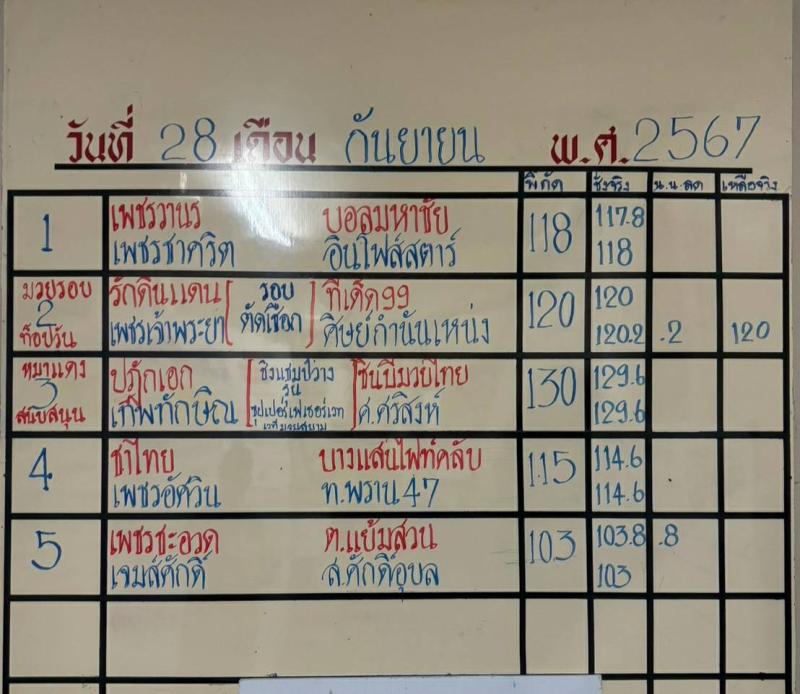 วันที่ 28 เดือน กันยายน พ.ศ. 2567
พิกัด ชั่งจริง น.น.ลด เหลือจริง
1 เพชรวานร บอลมหาชัย 118 117.8
เพชรชาคริต อินไฟส์สตาร์ 118
มวยรอบ รักดินแดน [ รอบ ] ทีเด็ด99 120 120
2 เพชรเจ้าพระยา ตัดเชือก ศิษย์กำนันเหน่ง 120.2 .2 120
ท็อปวัน
หมาแดง ปฏักเอก [ ชิงแชมป์ว่าง ] ชินบีมวยไทย 130 129.6
3 รุ่น
สนับสนุน เทพทักษิณ ซุปเปอร์เฟเธอร์เวท ศ.ศรสิงห์ 129.6
เวทีมวยสยาม
4 ชาไทย บางแสนไฟท์คลับ 115 114.6
เพชรอัศวิน ท.พราน47 114.6
5 เพชรชะอวด ต.แย้มสวน 103 103.8 .8
เจมส์ศักดิ์ ส.ศักดิ์อุบล 103